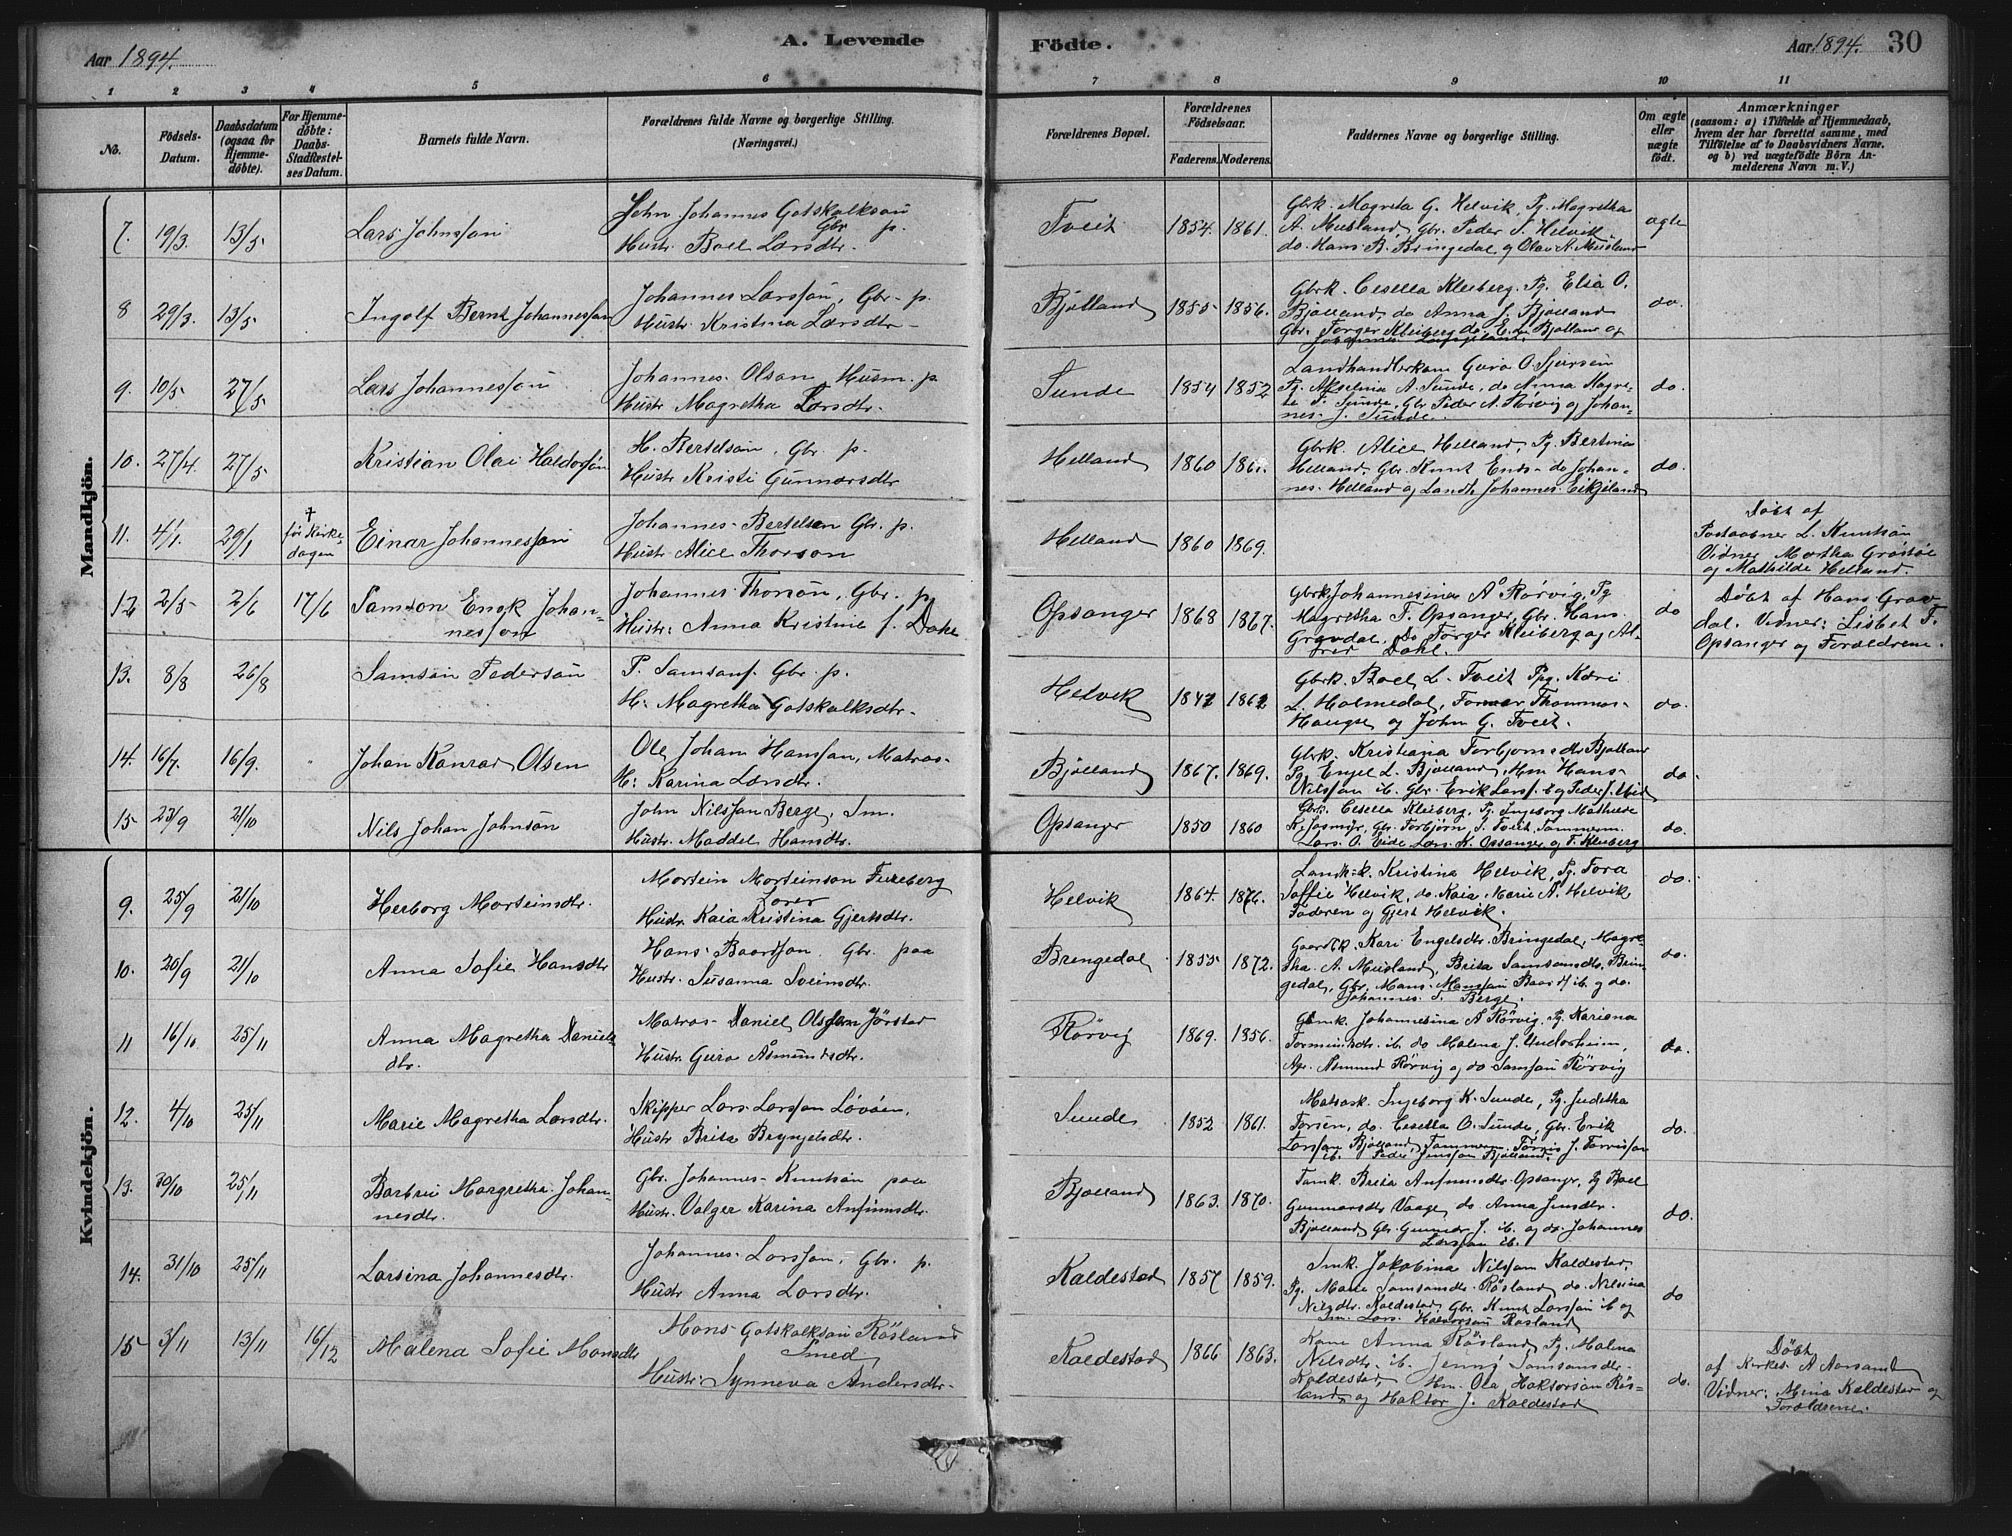 Aar 1894.
A. Levende
Födte.
Aar 1894. 30
1 2 3 4 5 6 7 8 9 10 11
No.
Födsels-Datum.
Daabsdatum (ogsaa for Hjemmedöbte).
For Hjemmedöbte: Daabs-Stadfæstelses Datum.
Barnets fulde Navn.
Forældrenes fulde Navne og borgerlige Stilling.
(Næringsvei.)
Forældrenes Bopæl.
Forældrenes Födselsaar.
Faderens. Moderens.
Faddernes Navne og borgerlige Stilling.
Om ægte eller uægte födt.
Anmærkninger
(saasom: a) i Tilfælde af Hjemmedaab,
hvem der har forrettet samme, med
Tilföielse af to Daabsvidners Navne.
og b) ved uægtefödte Börn An-
melderens Navn m.V.)
Mandkjön.
7. 19/3. 13/5 Lars Johnssøn
John Johannes Gotskalksøn
Gbr. p.
Hustr. Boel Larsdtr.
Tveit 1854. 1861.
Gbrk. Magreta G. Helvik, Pg. Magretha
A. Musland, Gbr. Peder S. Helvik
do. Hans B. Bringedal og Olav A. Musland
ægte
8 29/3. 13/5 Ingolf Bernt Johannessøn
Johannes Larssøn, Gbr. p.
Hustr. Kristina Larsdtr.
Bjølland 1855 1856.
Gbrk. Cesella Kleiberg, Pg. Elia O.
Bjølland, do Anna J. Bjølland
Gbr. Torger Kleiberg do. E. L. Bjølland og
do.
9. 10/5 27/5 Lars Johannessøn
Johannes Olson, Husm. p.
Hustr Magretha Larsdtr.
Sunde 1854 1852
Landhandlerkone Guro O. Sjursen
Pg. Akselina A. Sunde, do Anna Magre-
te T. Sunde, Gbr Peder A. Rørvig og Johan-
nes J. Sunde.
do.
10. 27/4. 27/5 Kristian Olai Haldorsøn
H. Bertelsøn, Gbr. p.
Hustr Kristi Gunnarsdtr
Helland 1860
Gbrk. Alice Helland, Pg. Bertina
Helland, Gbr. Knut Ends- do Johan-
nes Helland og Landh. Johannes Eikjeland
do.
11. 4/1. 29/1 † før Kirke-
dagen
Einar Johannessøn
Johannes Bertelsen Gbr. p.
Hustr Alice Thorson
Helland 1860 1869.
Døbt af
L. Knutsøn
Vidner Martha
og Mathilde Helland.
12 2/5 2/6 17/6 Samson Enok Johan-
nessøn
Johannes Thorsøn, Gbr. p.
Hustr: Anna Kristine f. Dahl
Opsanger 1868 1867.
Gbrk Johannesina Å Rørvig, Pg
Magretha T. Opsanger, Gbr. Hans
Gravdal, Do Torger Kleiberg og Al-
fred Dahl.
do
Døbt af Hans Grav
dal. Vidner: Lisbet T.
Opsanger og Forældrene.
13. 8/8 26/8 Samson Pedersøn
P. Samsøns. Gbr. p.
H: Magretha Gotskalksdtr.
Helvik 1862
Gbrk. Boel L. Tveit Pg. Kari
L. Holmedal, Thommas
Hauge og John G. Tveit.
do.
14. 16/7. 16/9. " Johan Konrad Olsen
Ole Johan Hanssøn, Matros
H: Karina Larsdtr.
Bjølland 1867. 1869.
Gbrk. Kristiana Torbjørnsdtr Bjølland
Pg. Engel L. Bjølland, Hm Hans
Nilssøn ib. Gbr. Erik Larss. Eg Peder J.
do.
15 23/9 21/10 Nils Johan Johnsøn
John Nilssøn Berge, Im.
Hustr. Maddel Hansdtr.
Opsanger 1850 1860
Gbrk. Cesella Kleiberg, Pg. Ingeborg Mathilde
Gbr. Torbjørn S. Tveit, Tømmerm.
Lars O. Eide Lars K. Opsanger og T. Kleiberg
do.
Kvindekjön.
9. 25/9 21/10 Herborg Morteinsdtr.
Mortein Morteinson Fureberg
Hustr Kaia Kristina Gjertsdtr.
Helvik 1864. 1876.
Kristina Helvik, Pg. Tora
Soffie Helvik, do. Kaia Marie A. Helvik
Faderen og Gjert Helvik.
do.
10. 20/9 21/10 Anna Sofie Hansdtr
Hans Baardson Gbr. paa
Hustr. Susanna Sveinsdtr.
Brengedal 1855 1872.
Gaardk. Kari Engelsdtr. Bringedal, Magre-
tha A. Musland, Brita Samsonsdtr. Brin-
gedal, Gbr. Hans Hanssøn Baard H ib. og do.
Johannes T. Berge.
do.
11 16/10 25/11 Anna Magretha Daniels-
dtr.
Matros Daniel Olsson Jørstad
Hustr Guro Åsmundsdtr.
Rørvig 1869. 1856.
Gbrk. Johannesina Å Rørvig, Pg. Kariana
ib. do Malena J. Underheim,
Asmund Rørvig og do Samson Rørvig
do.
12. 4/10 25/11 Marie Magretha Larsdtr.
Skipper Lars Larssøn Løvåen,
Hustr Brita Brynjelsdtr.
Sunde 1852 1861.
Matrosk. Ingeborg K. Sunde, Pg. Juditha
Torsen, do. Cesella O. Sunde, Gbr. Erik
Larssøn Bjølland, Tømmerm. Tørris J. Torrissøn
ib. Peder Jenssøn Bjølland.
do.
13. 30/10 25/11 Barbrii Margretha Johan-
nesdtr.
Gbr. Johannes Knutsøn paa
Hustr. Valger Karina Anfinnsdtr.
Bjølland 1863. 1870.
Brita Anfinnsdtr Opsanger, Pg Boel
Gunnarsdtr Vaage, do Anna Jensdtr.
Bjølland Gbr. Gunnar J. ib. og do. Johannes
Larssøn ib.
do.
14. 31/10 25/11 Larsina Johannesdtr.
Johannes Larssøn, Gbr. p.
Hustr Anna Larsdtr.
Kaldestad 1857 1859.
Smk. Jakobina Nilssøn Kaldestad,
Pg. Marie Samsonsdtr. Røsland do. Nilsina
Nilsdtr. Kaldestad, Gbr. Knut Larssøn ib og
Im. Lars Halvorssøn Røsland
do
15 3/11 13/11 16/12 Malena Sofie Monsdtr
Mons Gotskalksøn Røsland
Smed
Hustr: Synneva Andersdtr.
Kaldestad 1866 1863.
Kone Anna Røsland, Pg. Malena
Nilsdtr. ib. Jenny Samsonsdtr.
Kaldestad, Hm. Ola Haktorsøn Røs-
land og Haktor J. Kaldestad
do.
Døbt
af Kirkes. A Aarsand
Vidner: Mina Kaldestad og
Forældrene.